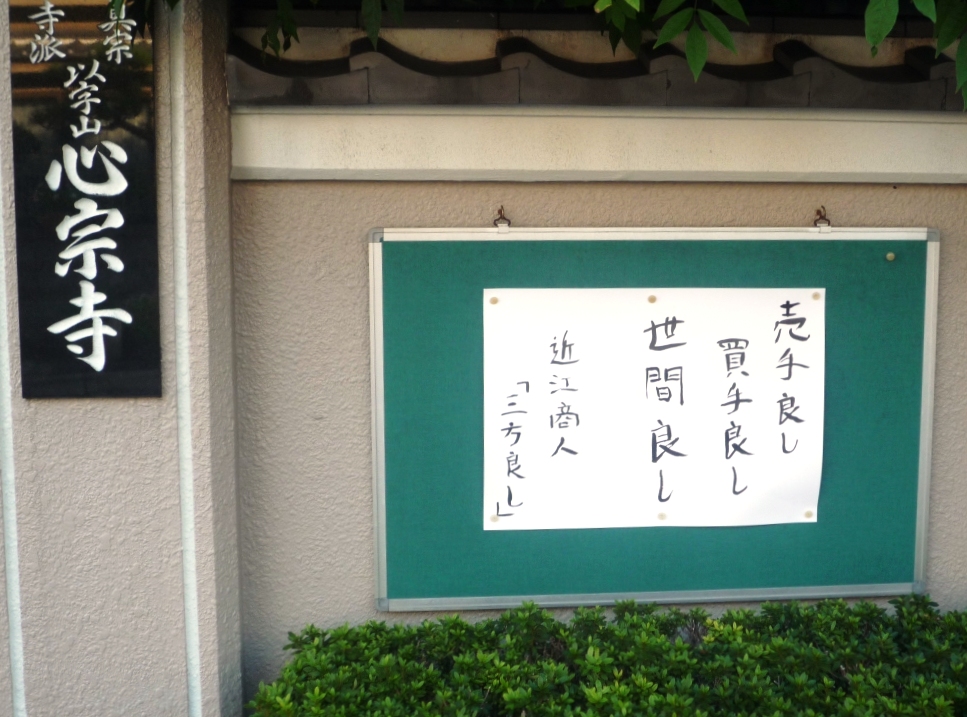 真宗
寺派
以字山
心宗寺
売手良し
買手良し
世間良し
近江商人
「三方良し」